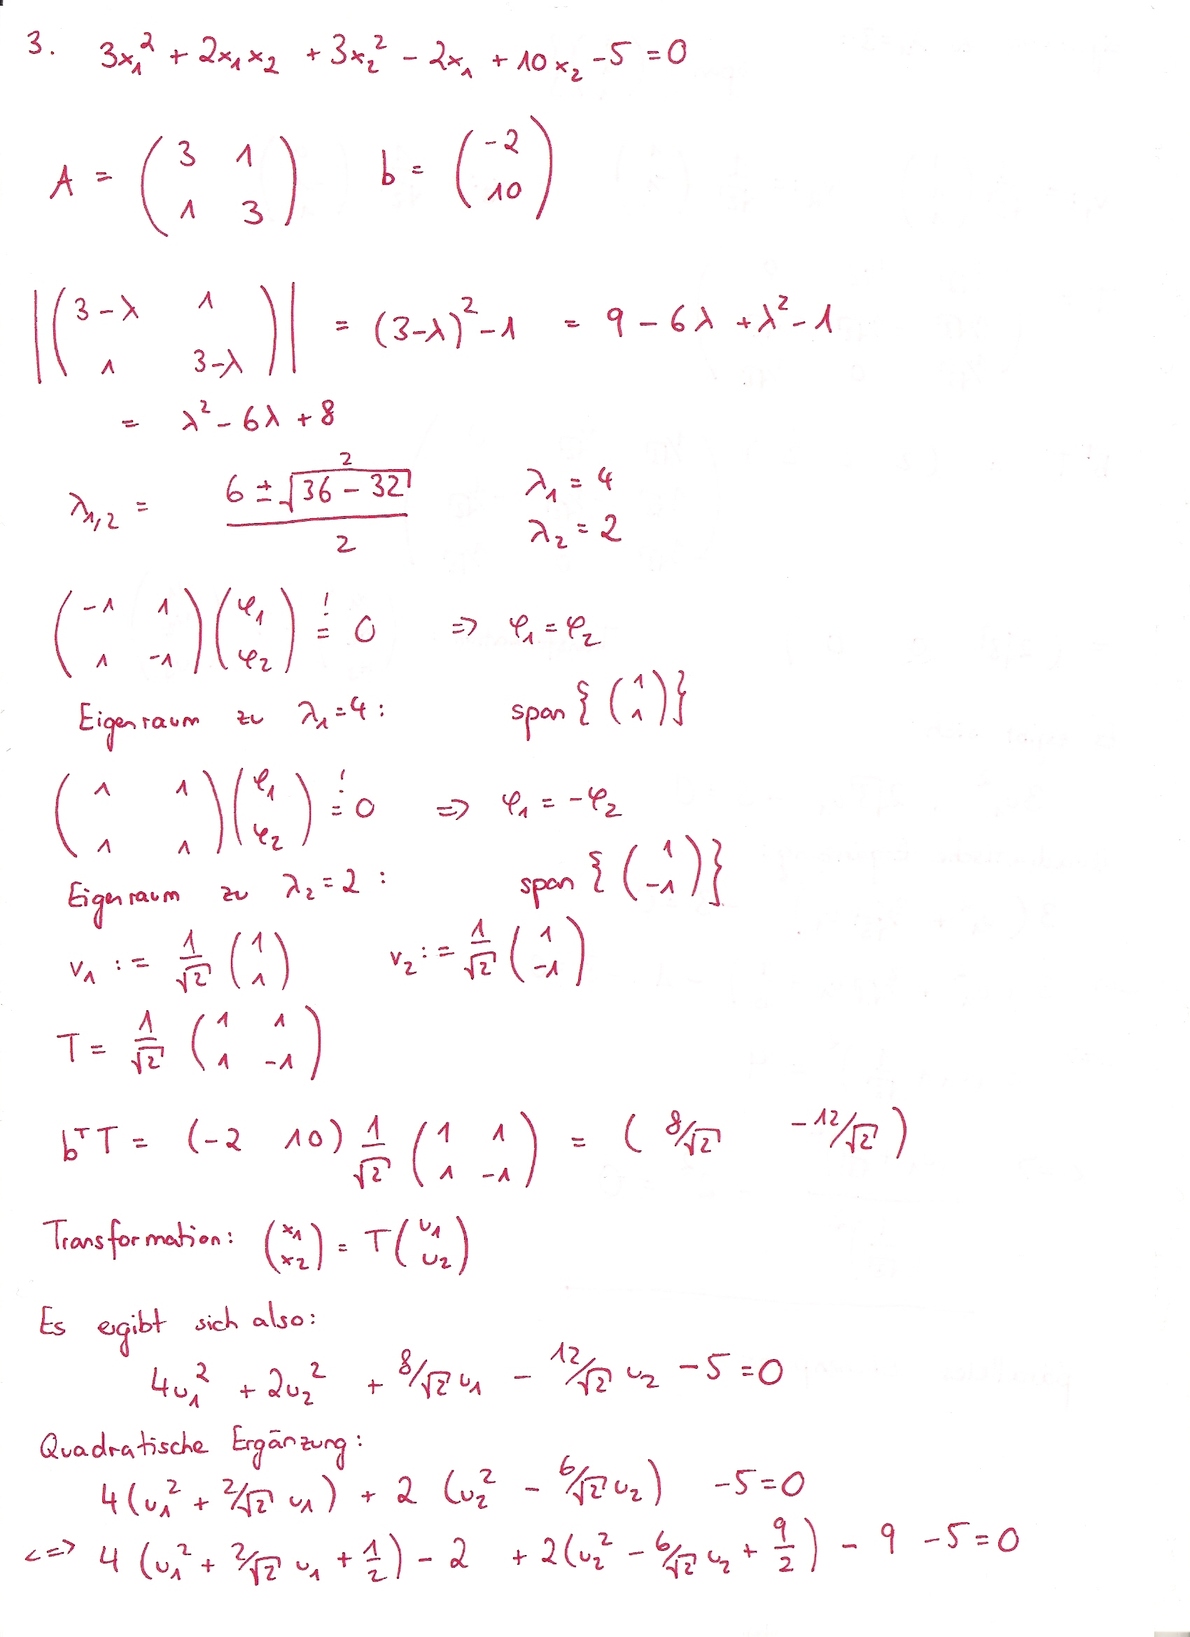 3. 3x₁² + 2x₁x₂ + 3x₂² - 2x₁ + 10x₂ - 5 = 0
A = ( 3 1 ; 1 3 ) b = ( -2 ; 10 )
| ( 3-λ 1 ; 1 3-λ ) | = (3-λ)² - 1 = 9 - 6λ + λ² - 1
= λ² - 6λ + 8
λ₁,₂ = (6 ± ²√(36 - 32)) / 2 λ₁ = 4
λ₂ = 2
( -1 1 ; 1 -1 ) ( φ₁ ; φ₂ ) =! 0 => φ₁ = φ₂
Eigenraum zu λ₁=4: span { ( 1 ; 1 ) }
( 1 1 ; 1 1 ) ( φ₁ ; φ₂ ) =! 0 => φ₁ = -φ₂
Eigenraum zu λ₂=2 : span { ( 1 ; -1 ) }
v₁ := 1/√2 ( 1 ; 1 ) v₂ := 1/√2 ( 1 ; -1 )
T = 1/√2 ( 1 1 ; 1 -1 )
bᵀT = (-2 10) 1/√2 ( 1 1 ; 1 -1 ) = ( 8/√2 -12/√2 )
Transformation: ( x₁ ; x₂ ) = T ( u₁ ; u₂ )
Es ergibt sich also:
4u₁² + 2u₂² + 8/√2 u₁ - 12/√2 u₂ - 5 = 0
Quadratische Ergänzung:
4(u₁² + 2/√2 u₁) + 2 (u₂² - 6/√2 u₂) - 5 = 0
<=> 4 (u₁² + 2/√2 u₁ + 1/2) - 2 + 2(u₂² - 6/√2 u₂ + 9/2) - 9 - 5 = 0